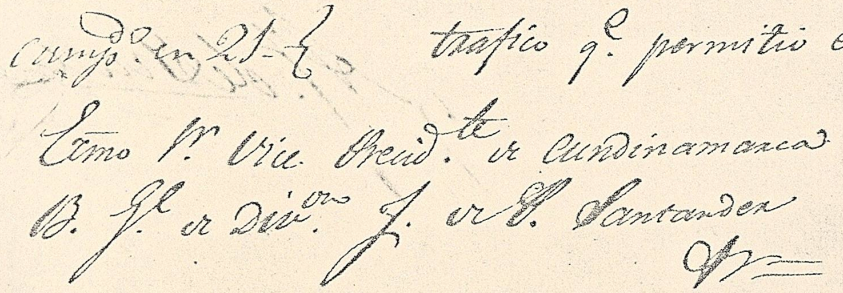 cumpdo en 21 trafico qe. permitio e
Exmo Sr. Vice Presidte. de Cundinamarca
B. Gl. de Divon. F. de P. Santander